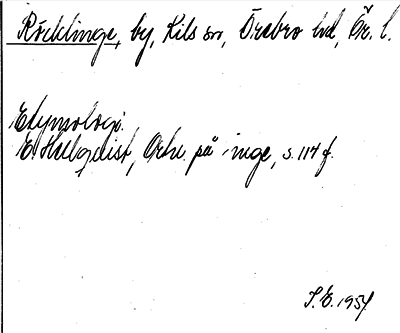 Räcklinge, by, Kils sn, Örebro hd, Ör. l.
Etymologi.
E. Hellquist, Ortn. på -inge, s. 114 f.
S. E. 1954